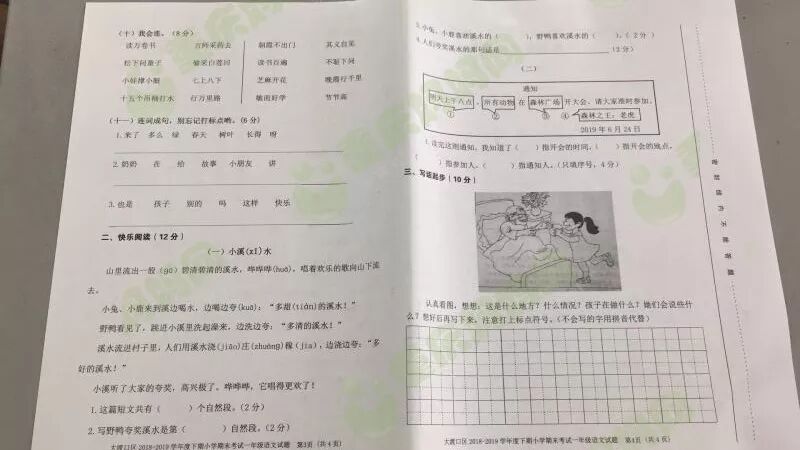 （十）我会连。（8分）
读万卷书 言师采药去 朝霞不出门 其义自见
松下问童子 偷采白莲回 读书百遍 不耻下问
小娃撑小艇 七上八下 芝麻开花 晚霞行千里
十五个吊桶打水 行万里路 敏而好学 节节高
（十一）连词成句，别忘记打标点哟。（6分）
1.来了 多么 绿 春天 树叶 长得 呀
2.奶奶 在 给 故事 小朋友 讲
3.也是 孩子 别的 吗 这样 快乐
二、快乐阅读（12分）
（一）小溪(xī)水
山里流出一股(gǔ)碧清碧清的溪水，哗哗哗(huā)，唱着欢乐的歌向山下流
去。
小兔、小鹿来到溪边喝水，边喝边夸(kuā)：“多甜(tián)的溪水！”
野鸭看见了，跳进小溪里洗起澡来，边洗边夸：“多清的溪水！”
溪水流进村子里，人们用溪水浇(jiāo)庄(zhuāng)稼(jia)，边浇边夸：“多
好的溪水！”
小溪听了大家的夸奖，高兴极了。哗哗哗，它唱得更欢了！
1.这篇短文共有（ ）个自然段。（2分）
2.写野鸭夸奖溪水是第（ ）自然段。（2分）
大渡口区2018-2019学年度下期小学期末考试一年级语文试题 第3页（共4页）
3.小兔、小鹿喜欢溪水的（ ），野鸭喜欢溪水的（ ）。（2分）
4.人们夸奖溪水的那句话是 （2分）
（二）
通知
明天上午八点，所有动物在森林广场开大会，请大家准时参加。
① ② ③ ④ 森林之王：老虎
2019年6月24日
1.读完这则通知，我知道了（ ）指开会的时间，（ ）指开会的地点，
（ ）指参加人，（ ）指通知人。（只填序号，4分）
三、写话起步（10分）
认真看图，想想：这是什么地方？什么情况？孩子在做什么？她们会说些什
么？想好后再写下来，注意打上标点符号。（不会写的字用拼音代替）
大渡口区2018-2019学年度下期小学期末考试一年级语文试题 第4页（共4页）
密封线内不能答题